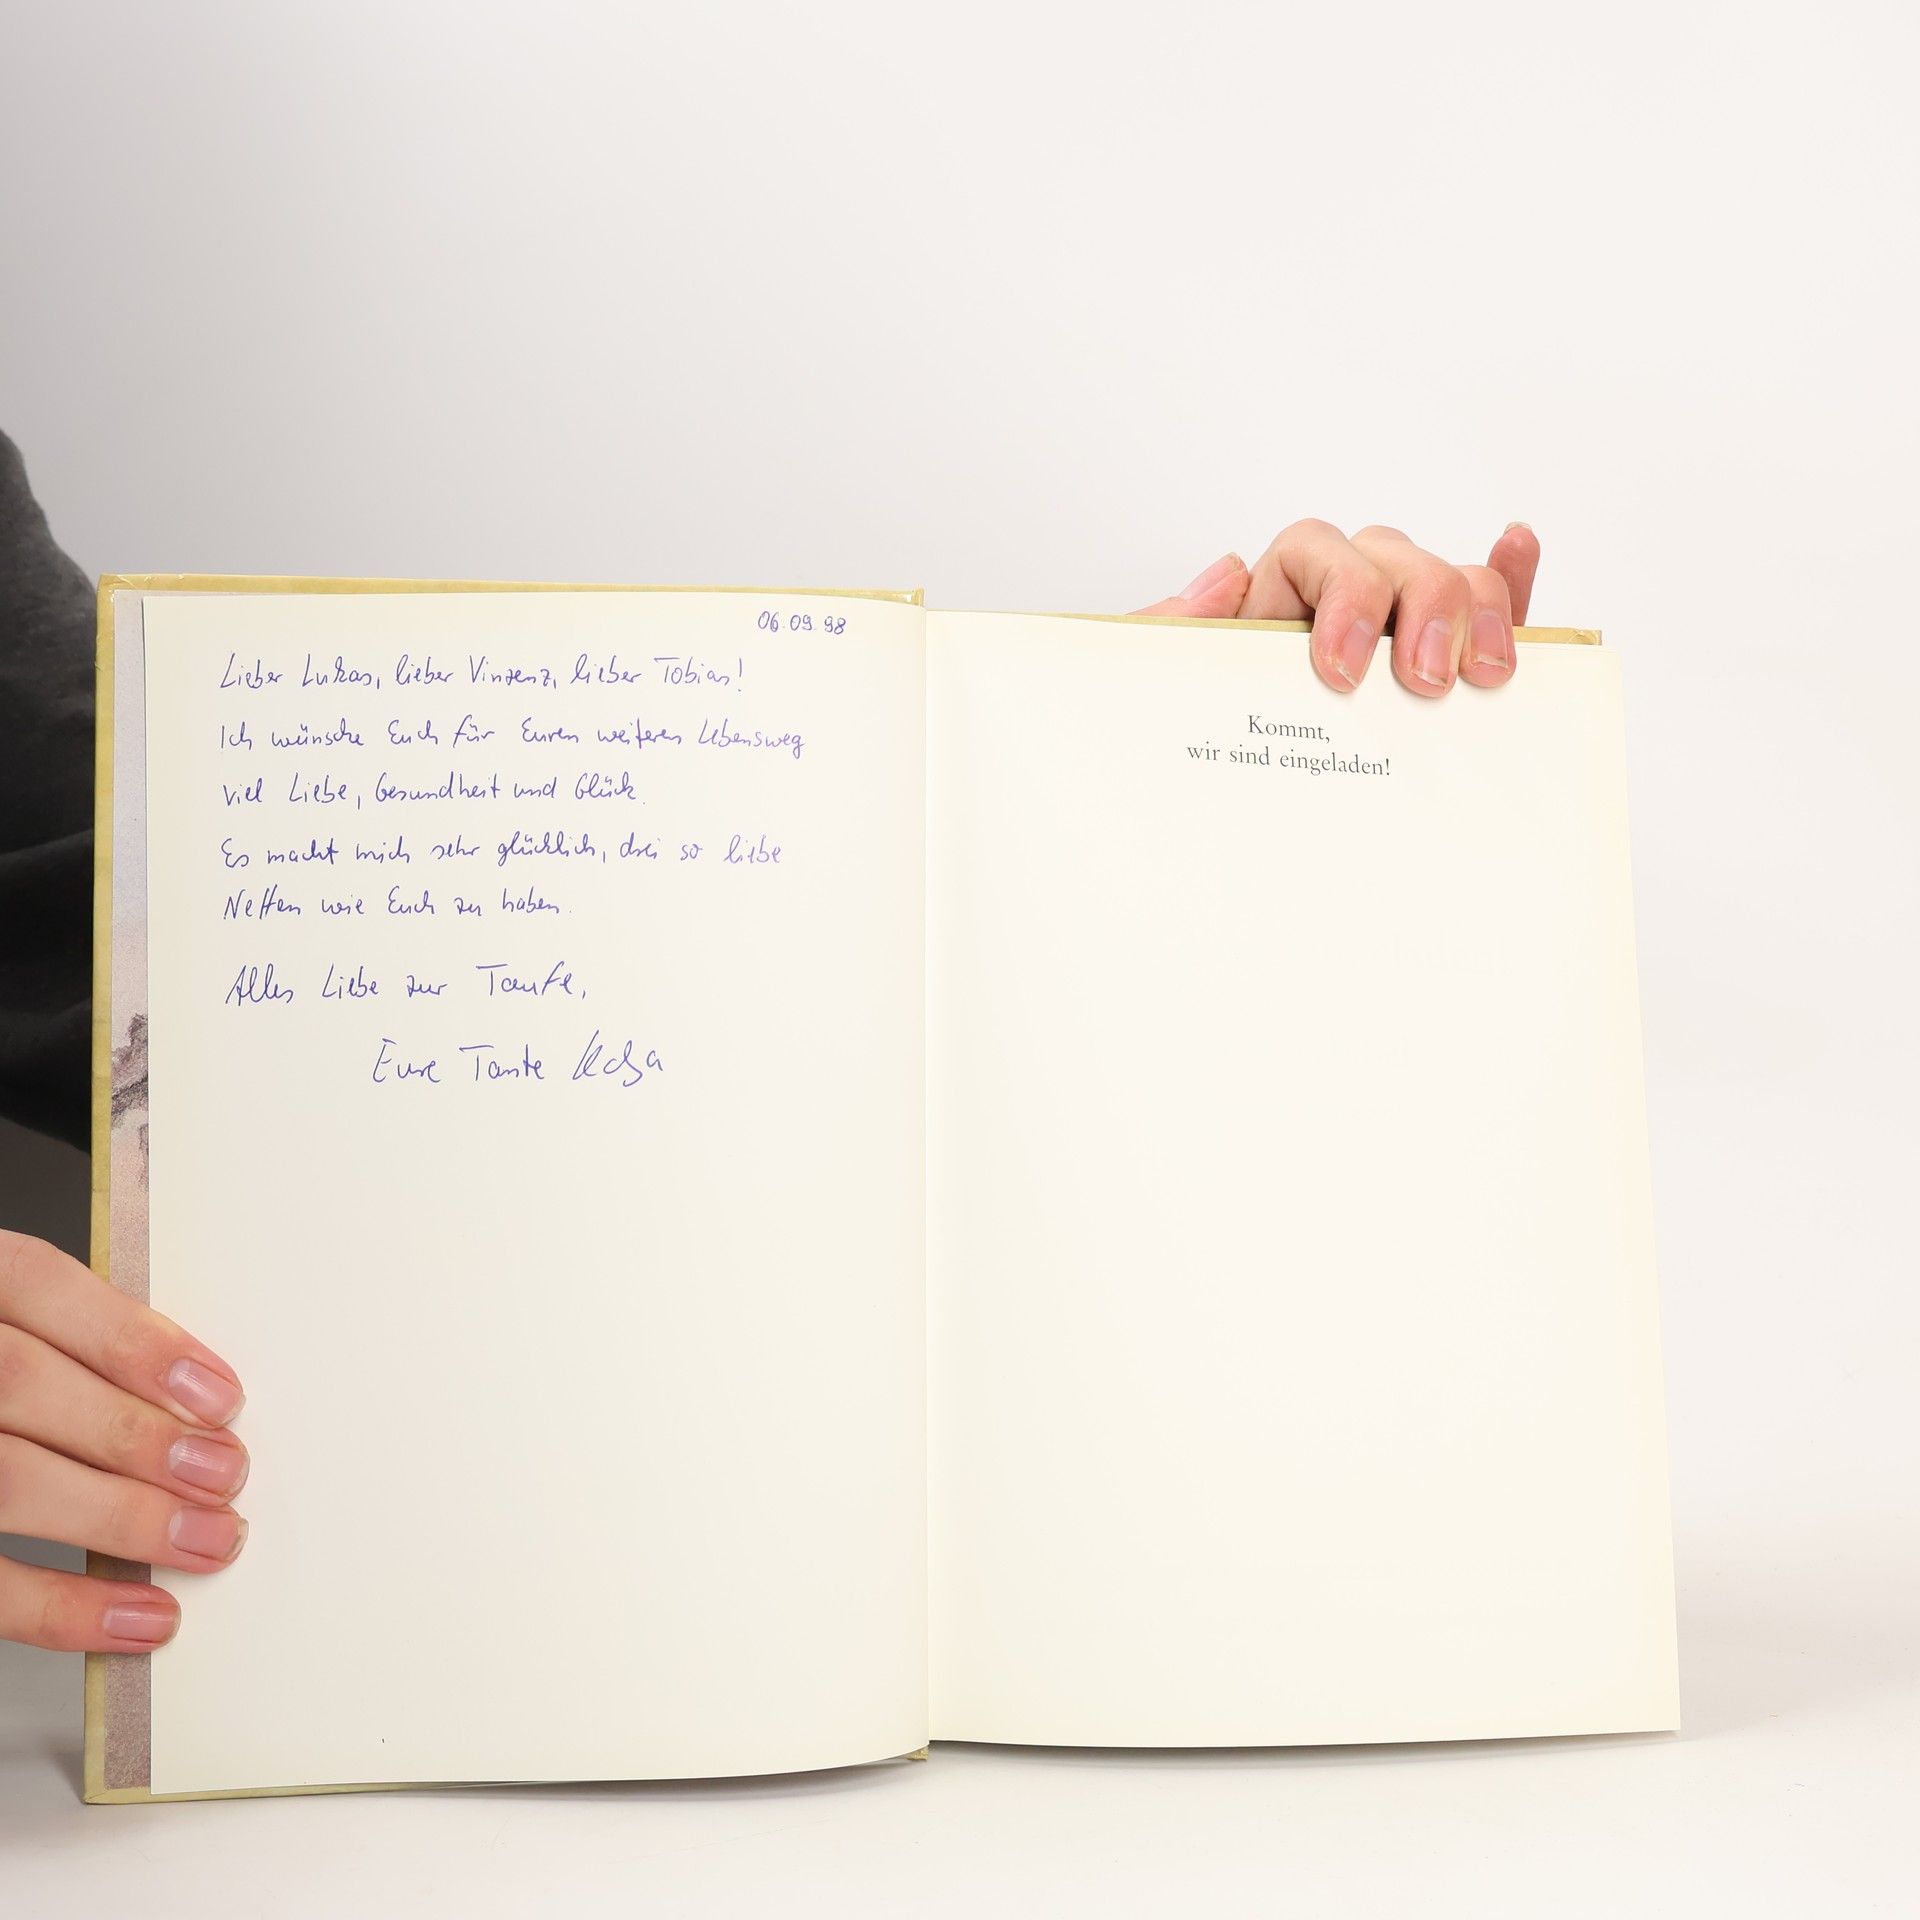 06.09.98
Lieber Lukas, lieber Vinzenz, lieber Tobias!
Ich wünsche Euch für Euren weiteren Lebensweg
viel Liebe, Gesundheit und Glück.
Es macht mich sehr glücklich, drei so liebe
Neffen wie Euch zu haben.
Alles Liebe zur Taufe,
Eure Tante
Kommt,
wir sind eingeladen!